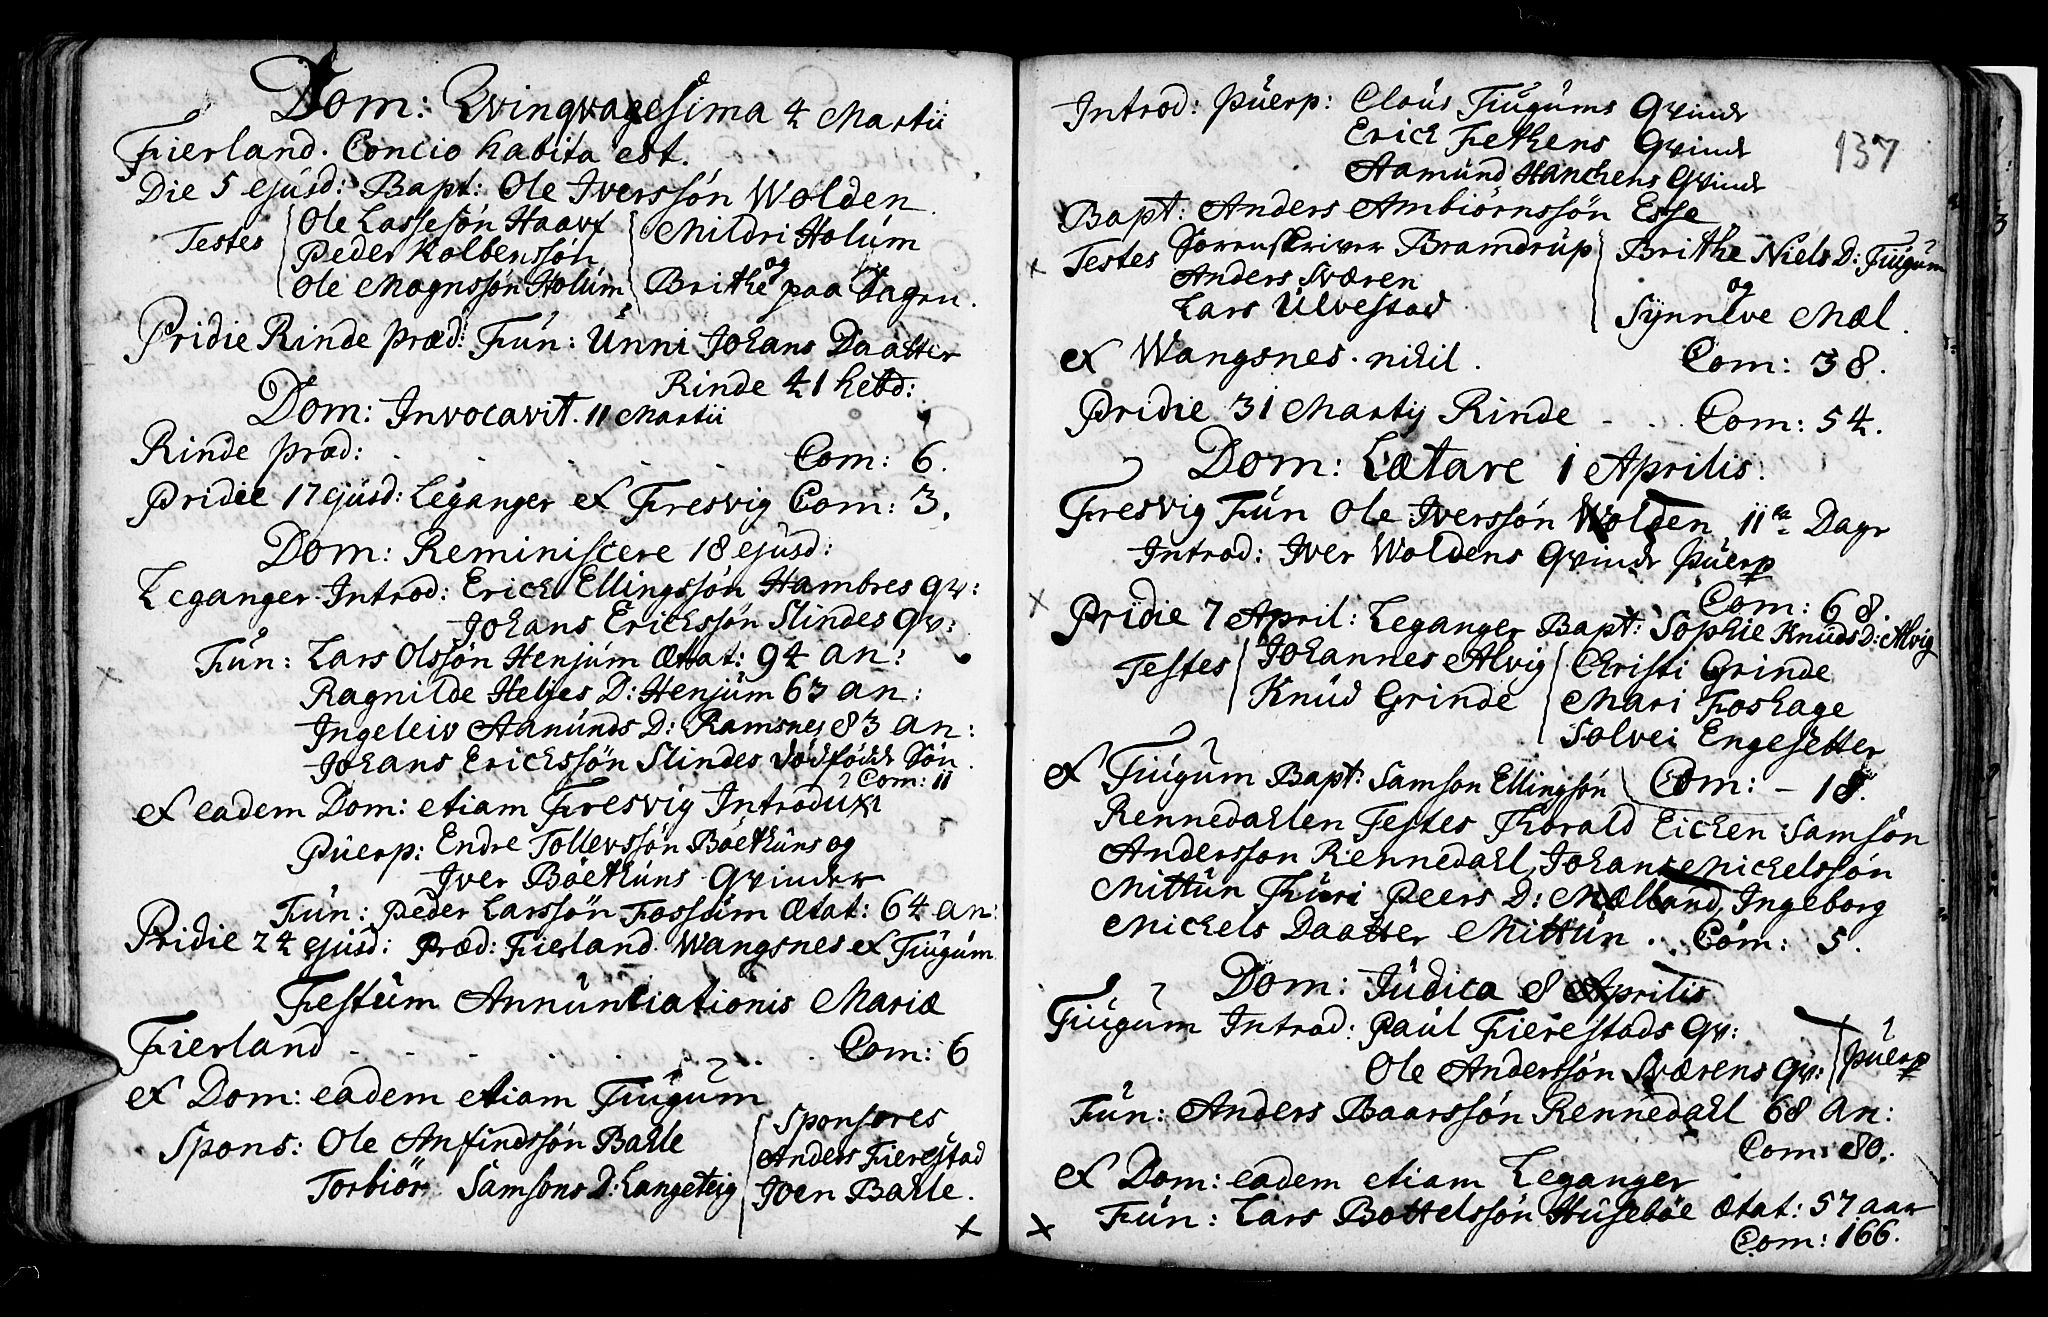 Dom: Qvinqvagesima 4 Martii
Fierland. Concio habita est.
Die 5 ejusd: Bapt: Ole Iverssøn Wolden
Testes Ole Lassesøn Haarf Mildri Holum
Peder Kolbenssøn og
Ole Mognssøn Holum Brithe paa
Pridie Rinde præd: Fun: Unni Johans Daatter
Rinde 41 hebd:
Dom: Invocavit. 11 Martii
Rinde præd: . . . . . Com: 6.
Pridie 17 ejusd: Leganger et Fresvig Com: 3.
Dom: Reminiscere 18 ejusd:
Leganger Introd: Erich Ellingssøn Hambres qv:
Johans Erickssøn Slindes qv:
Fun: Lars Olssøn Henjum Ætat: 94 an:
Ragnilde Heljes D: Henjum 63 an:
Ingeleiv Aamunds D: Ramsnes 83 an:
Johans Erickssøn Slindes dødfødde Søn.
Com: 11
et eadem Dom: etiam Fresvig Introduxi
Puerp: Endre Tollevssøn Böethuns og
Iver Böethuns Qvinder
Fun: Peder Larssøn Fossum Ætat: 64 an:
Pridie 24 ejusd: Præd: Fierland Wangsnes et Tiugum
Festum Annuntiationis Mariæ
Fierland . . . . . . Com: 6
et Dom: eadem etiam Tiugum
Spons: Ole Anfindssøn Bahle Sponsores
Anders Fierestad
Torbiör Samsons D: Langeteig Iven Bahle.
Introd: Puerp: Claus Tiugums Qvinde
137
Erick Fethens Qvinde
Aamund Hanchens Qvinde
Bapt: Anders Ambiörnssøn Esse
Testes Sorenskriver Bramdrup Brithe Niels D: Tiugum
Anders Sværen og
Lars Ulvestad Synneve Mæl.
et Wangsnes. nihil. Com: 38.
Pridie 31 Martij Rinde . . . Com: 54.
Dom: Lætare 1 Aprilis.
Fresvig Fun Ole Iverssøn Wolden 11 Dage
Introd: Iver Woldens Qvinde Puerp
Com: 68.
Pridie 7 April: Leganger Bapt: Sophie Knuds D: Alvig
Testes Johannes Alvig Christi Grinde
Knud Grinde Mari Foshage
Solvei Engesetter
et Tiugum Bapt: Samson Ellingsøn Com: - 18.
Rennedahlen Testes Thorald Eichen Samsøn
Andersson Rennedahl Johans Michelssøn
Mittun Thuri Peers D: Mælland, Ingeborg
Michels Daatter Mittun . Com: 5.
Dom: Judica 8 Aprilis
Tiugum Introd: Paul Fierestads qv:
Ole Anderssøn Sværens qv: Puerp
Fun: Anders Baarssøn Rennedahl 68 an:
Com: 80.
et Dom: eadem etiam Leganger
Fun: Lars Bottelssøn Husebøe Ætat: 57 aar
Com: 166.